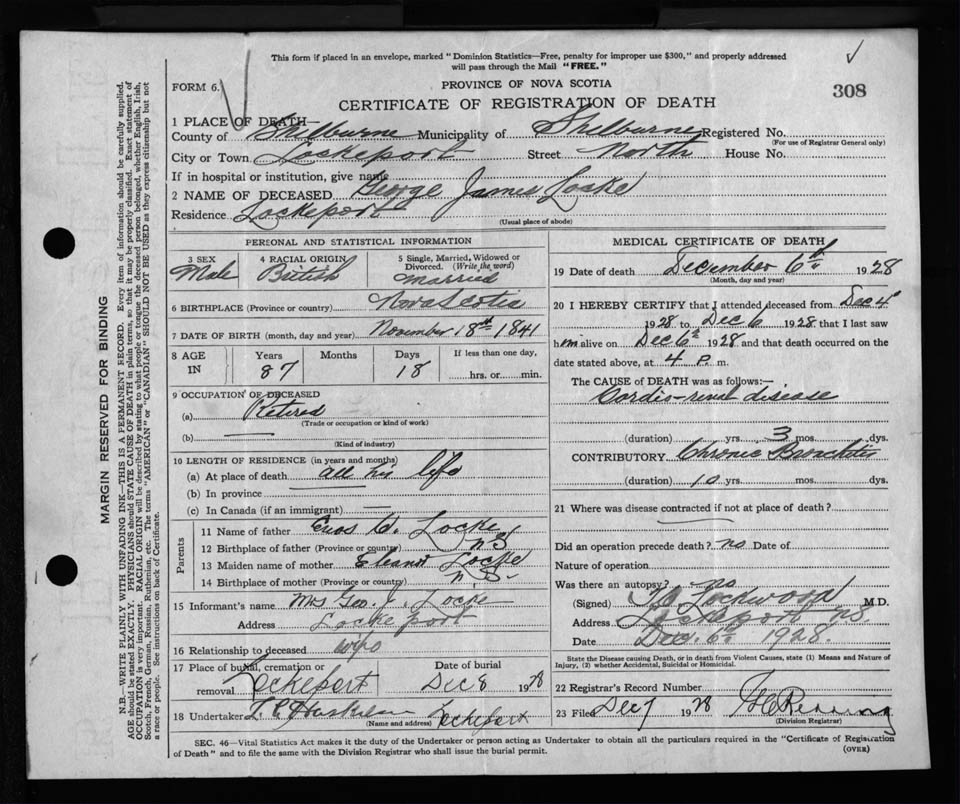 This form if placed in an envelope, marked "Dominion Statistics—Free, penalty for improper use $300," and properly addressed
will pass through the Mail "FREE."
308
FORM 6.
PROVINCE OF NOVA SCOTIA
CERTIFICATE OF REGISTRATION OF DEATH
1 PLACE OF DEATH—
County of Shelburne Municipality of Shelburne Registered No.
(For use of Registrar General only)
City or Town Lockeport Street North House No.
If in hospital or institution, give name
2 NAME OF DECEASED George James Locke
Residence Lockeport
(Usual place of abode)
PERSONAL AND STATISTICAL INFORMATION
3 SEX Male
4 RACIAL ORIGIN British
5 Single, Married, Widowed or Divorced. (Write the word) Married
6 BIRTHPLACE (Province or country) Nova Scotia
7 DATE OF BIRTH (month, day and year) November 18th 1841
8 AGE IN
Years 87
Months
Days 18
If less than one day, hrs. or min.
9 OCCUPATION OF DECEASED
(a) Retired
(Trade or occupation or kind of work)
(b) —
(Kind of industry)
10 LENGTH OF RESIDENCE (in years and months)
(a) At place of death all his life
(b) In province
(c) In Canada (if an immigrant) —
Parents
11 Name of father Enos C. Locke
12 Birthplace of father (Province or country) N.S
13 Maiden name of mother Eleanor Locke
14 Birthplace of mother (Province or country) N.S.
15 Informant's name Mrs Geo. J. Locke
Address Lockeport
16 Relationship to deceased wife
17 Place of burial, cremation or removal Lockeport
Date of burial Dec 8 1928
18 Undertaker Lockeport
(Name and address)
MEDICAL CERTIFICATE OF DEATH
19 Date of death December 6th 1928
(Month, day and year)
20 I HEREBY CERTIFY that I attended deceased from Dec 4
1928 to Dec 6 1928 that I last saw
him alive on Dec 6th 1928 and that death occurred on the
date stated above, at 4 P. m.
The CAUSE of DEATH was as follows:—
Cardio-renal disease
(duration) yrs. 3 mos. dys.
CONTRIBUTORY Chronic Bronchitis
(duration) 10 yrs. mos. dys.
21 Where was disease contracted if not at place of death?
Did an operation precede death? no Date of
Nature of operation
Was there an autopsy? no
(Signed) Lockwood M D.
Address Lockeport N.S.
Date Dec. 6th 1928.
State the Disease causing Death, or in death from Violent Causes, state (1) Means and Nature of
Injury, (2) whether Accidental, Suicidal or Homicidal.
22 Registrar's Record Number
23 Filed Dec 7 1928
(Division Registrar)
SEC. 46—Vital Statistics Act makes it the duty of the Undertaker or person acting as Undertaker to obtain all the particulars required in the "Certificate of Registration
of Death" and to file the same with the Division Registrar who shall issue the burial permit.
(OVER)
MARGIN RESERVED FOR BINDING
N.B.—WRITE PLAINLY WITH UNFADING INK—THIS IS A PERMANENT RECORD. Every item of information should be carefully supplied.
AGE should be stated EXACTLY. PHYSICIANS should STATE CAUSE OF DEATH in plain terms, so that it may be properly classified. Exact statement of
OCCUPATION is very important. RACIAL ORIGIN will be described by stating to what people or tongue the deceased person belonged, whether English, Irish,
Scotch, French, German, Russian, Ruthenian, etc. The terms "AMERICAN" or "CANADIAN" SHOULD NOT BE USED as they express citizenship but not
a race or people. See instructions on back of Certificate.